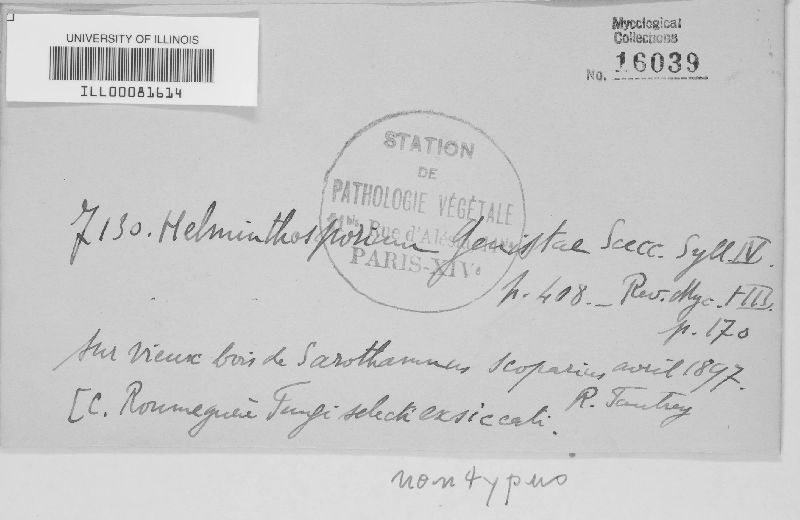 UNIVERSITY OF ILLINOIS
ILL00081614
Mycological
Collections
No. 16039
STATION
DE
PATHOLOGIE VÉGÉTALE
11bis Rue d'Alésia
PARIS-XIVe
7130. Helminthosporium Genistae Sacc. Syll. IV.
p. 408. _ Rev. Myc. t III.
p. 170
sur vieux bois de Sarothamnus scoparius avril 1897.
R. Fautrey
[C. Roumeguère Fungi selecti exsiccati.
non typus